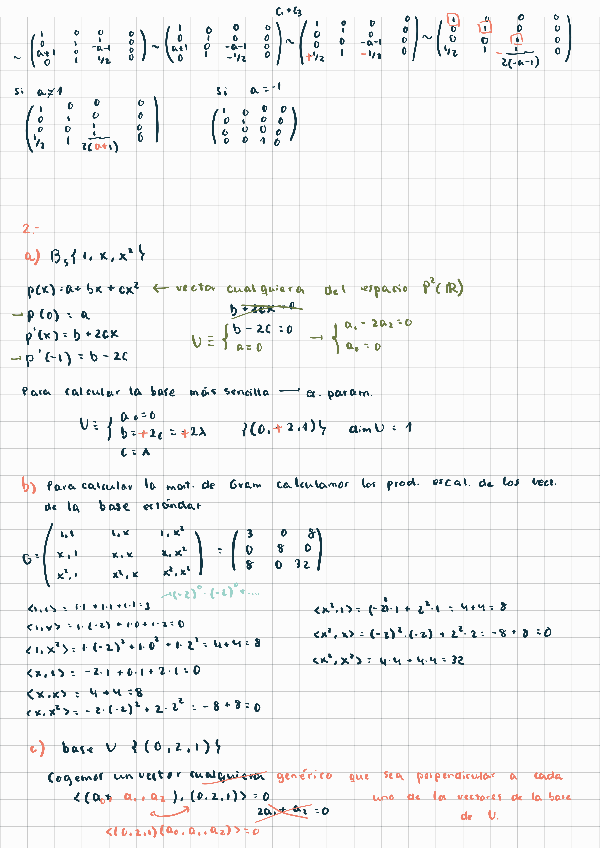 C₁ + C₃
~ ( 1 0 0 0 ; 0 1 0 0 ; 0 -a-1 0 ; a+1 1 1/2 0 ) ~ ( 1 0 0 0 ; 0 1 0 0 ; a+1 0 -a-1 0 ; 0 1 -1/2 0 ) ~ ( 1 0 0 0 ; 0 1 0 0 ; 0 0 -a-1 0 ; +1/2 1 -1/2 0 ) ~ ( 1 0 0 0 ; 0 1 0 0 ; 0 0 1 0 ; 1/2 1 -1/2(-a-1) 0 )
si a≠1 si a=-1
( 1 0 0 0 ; 0 1 0 0 ; 0 0 1 0 ; 1/2 1 1/2(a+1) 0 ) ( 1 0 0 0 ; 0 1 0 0 ; 0 0 0 0 ; 0 0 1 0 )
2.-
a) Bₛ{1, x, x²}
p(x) = a + bx + cx² ← vector cualquiera del espacio P²(ℝ)
→ p(0) = a
p'(x) = b + 2cx
→ p'(-1) = b - 2c
U ≡ { b - 2c = 0 ; a = 0 → { a₁ - 2a₂ = 0 ; a₀ = 0
Para calcular la base más sencilla — ec. param.
U ≡ { a₀ = 0 ; b = +2c = +2λ ; c = λ {(0, +2, 1)} dim U = 1
b) Para calcular la mat. de Gram calculamos los prod. escal. de los vect.
de la base estándar
G = ( 1,1 1,x 1,x² ; x,1 x,x x,x² ; x²,1 x²,x x²,x² ) = ( 3 0 8 ; 0 8 0 ; 8 0 32 )
(-2)⁰·(-2)⁰ + ....
<1,1> = 1·1 + 1·1 + 1·1 = 3
<1,x> = 1·(-2) + 1·0 + 1·2 = 0
<1,x²> = 1·(-2)² + 1·0² + 1·2² = 4+4 = 8
<x,1> = -2·1 + 0·1 + 2·1 = 0
<x,x> = 4 + 4 = 8
<x,x²> = -2·(-2)² + 2·2² = -8 + 8 = 0
<x²,1> = (-2)²·1 + 2²·1 = 4+4 = 8
<x²,x> = (-2)²·(-2) + 2²·2 = -8 + 8 = 0
<x²,x²> = 4·4 + 4·4 = 32
c) base U {(0, 2, 1)}
Cogemos un vector cualquiera genérico que sea perpendicular a cada
uno de los vectores de la base
de U.
<(a₀, a₁, a₂), (0, 2, 1)> = 0
2a₁ + a₂ = 0
<(0,2,1)(a₀,a₁,a₂)> = 0